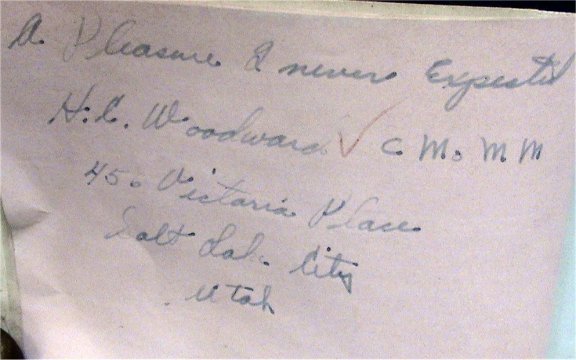 A Pleasure I never Expected
H.C. Woodward ✓ C M. M M
45. Victoria Place
Salt Lak. City
Utah